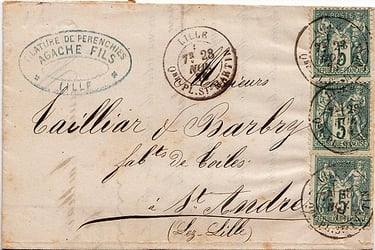 FILATURE DE PERENCHIES
AGACHE FILS
LILLE
LILLE
7E 28
NOV
Messieurs
Cailliar & Barbry
fabts de Toiles
à St André
(Lez-Lille)
5
5
5